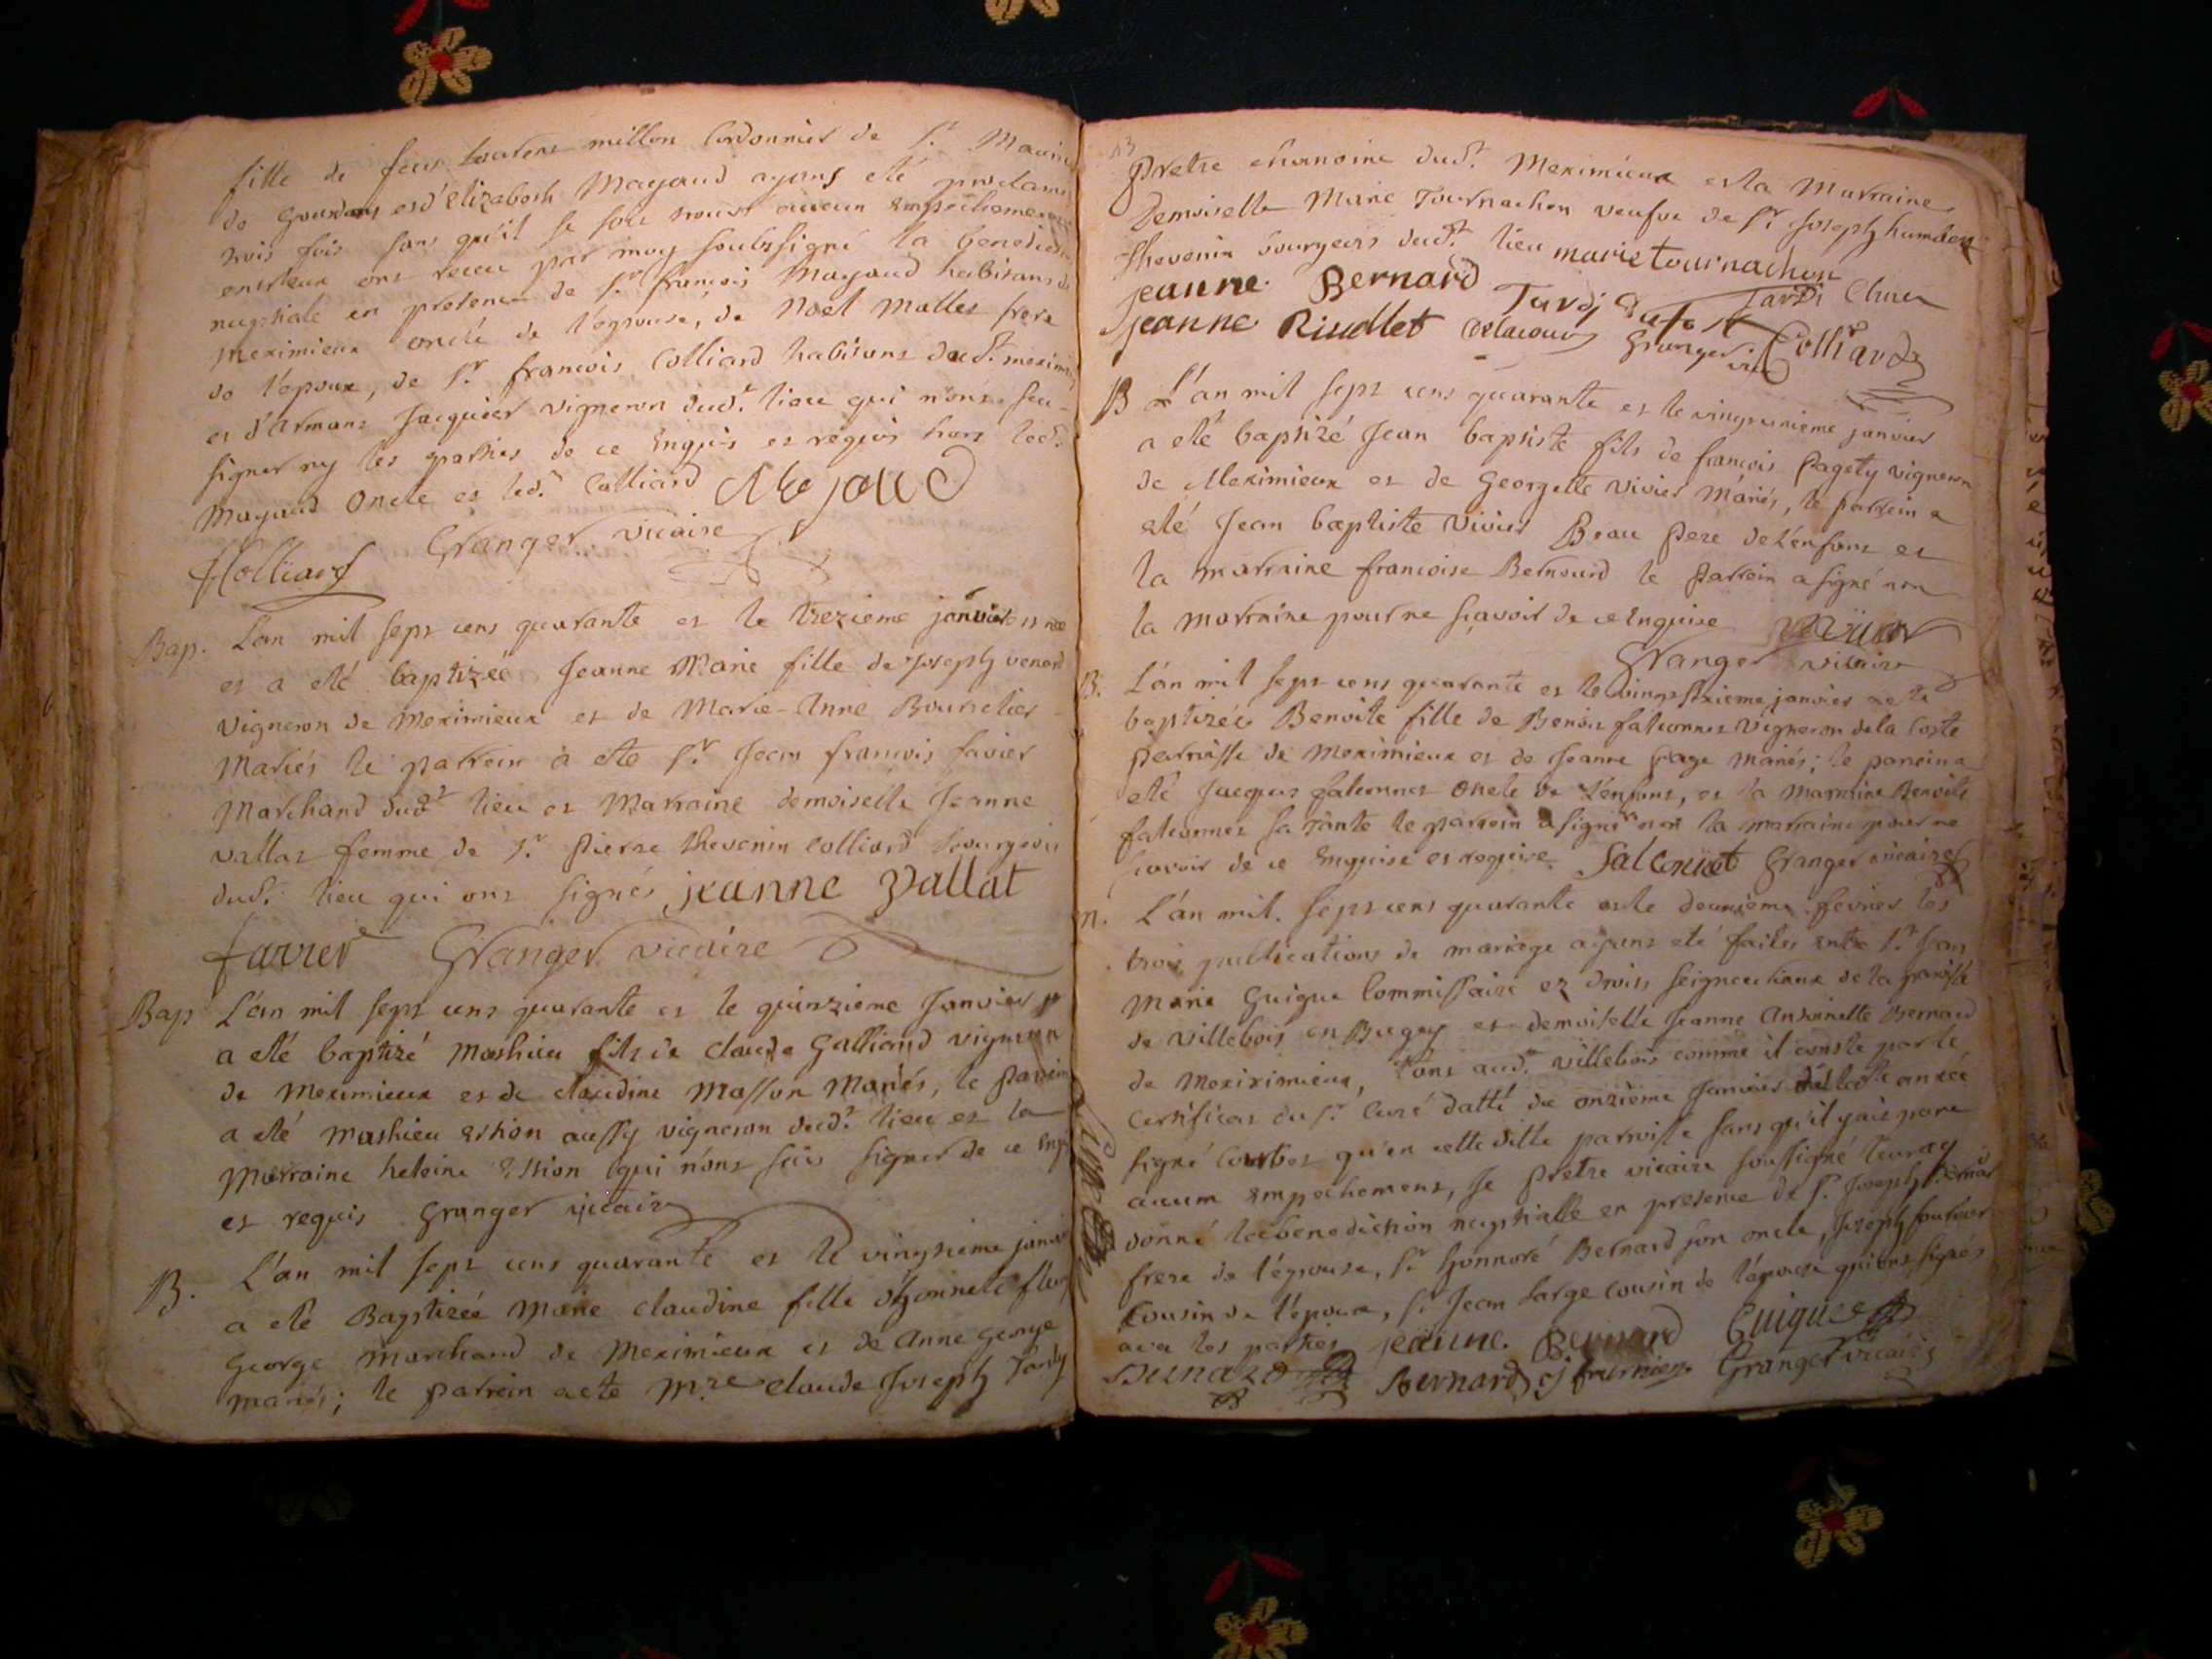 fille de feu laurens millon Cordonnier de Sr. Mauri
de Gourdans et d'Elizabeth Mayaud ayans eté proclamés
trois fois sans qu'il se soit trouvé aucun Empechement
entreux ont receu par moy soubsigné la benediction
nuptiale en presence de Sr. françois Mayaud habitans de
Meximieux oncle de l'epouse, de Noel mallet frere
de l'epoux, de Sr. francois Colliard habitans dudt. mexim
et d'Armans Jacquier vigneron dudt. lieu qui n'ons sceu
signer ny les parties de ce Enquis et requis hors ledt.
Mayaud Oncle et ledt. Colliard Mejaud
Granger vicaire
fColliard
Bap. L'an mil sept cens quarante et le trezieme janvier est née
et a eté baptizée Jeanne Marie fille de Joseph venard
vigneron de Meximieux et de Marie-Anne Bourrelier
Mariés le parrein à ete Sr. Jean francois favier
Marchand dudt. lieu et Marraine demoiselle Jeanne
vallat femme de Sr. Pierre thevenin Colliard bourgeois
dudt. lieu qui ons signés jeanne Vallat
favier Granger vicaire
Bap L'an mil sept cens quarante et le quinzieme Janvier
a eté baptizé Mathieu fils de claude Galliand vigneron
de Meximieux et de claudine Masson Mariés, le Parrein
a eté Mathieu Estion aussy vigneron dudt. lieu et la
Marraine heleine Estion qui n'ons sceu signer de ce Enq
et requis Granger vicaire
B. L'an mil sept cens quarante et le vingtieme janvi
a eté Baptizée Marie claudine fille d'honnete fleury
George Marchand de Meximieux et de Anne George
mariés; le parrein a ete Mre claude Joseph Tardy
Pretre chanoine dudt. Meximieux et la Marraine
Demoiselle Marie Tournachon veufve de Sr. Joseph humbert
thevenin bourgeois dudt. lieu marie tournachon
jeanne Bernard Tardi
jeanne Riudlet delacour Granger vic Colliard
B L'an mil sept cens quarante et le vingtunieme janvier
a eté baptizé Jean baptiste fils de francois Pagety vigneron
de Meximieux et de Georgette vivier Mariés, le parrein a
eté Jean baptiste vivier Beau Pere de L'enfans et
la marraine francoise Bernourd le Parrein a signé non
la marraine pour ne sçavoir de ce Enquise vivier
Granger vicaire
B. L'an mil sept cens quarante et le vingtsixieme janvier a eté
baptizée Benoite fille de Benois falconnet Vigneron de la Coste
Parroisse de Meximieux et de Jeanne Page Mariés; le parrein a
eté Jacques falconnet Oncle de L'enfant, et la Marraine Benoite
falconnet sa Tante le parrein a signé non la marraine pour ne
scavoir de ce Enquise et requise Falconnet Granger vicaire
M. L'an mil sept cens quarante et le deuxieme fevrier les
trois publications de mariage ayans eté faites entre Sr. Jean
Marie Guigue Commissaire ez droits seigneuriaux de la paroisse
de villebois en Bugey et demoiselle Jeanne Antoinette Bernard
de Meximieux, tans audt. villebois comme il conste par le
certificat du Sr. Curé datté du onzieme Janvier année
signé Courbet qu'en cette ditte parroisse sans qu'il y ait paru
aucun empechement, Je Pretre vicaire soussigné leur ay
donné la benediction nuptialle en presence de Sr. Joseph Bernard
frere de l'epouse, Sr. honnoré Bernard son oncle, Joseph fournier
Cousin de l'epoux, Sr. Jean Large cousin de l'epouse qui ons signés
avec les parties jeanne. Bernard Guigue
Bernard Bernard cj fournier Granger vicaire